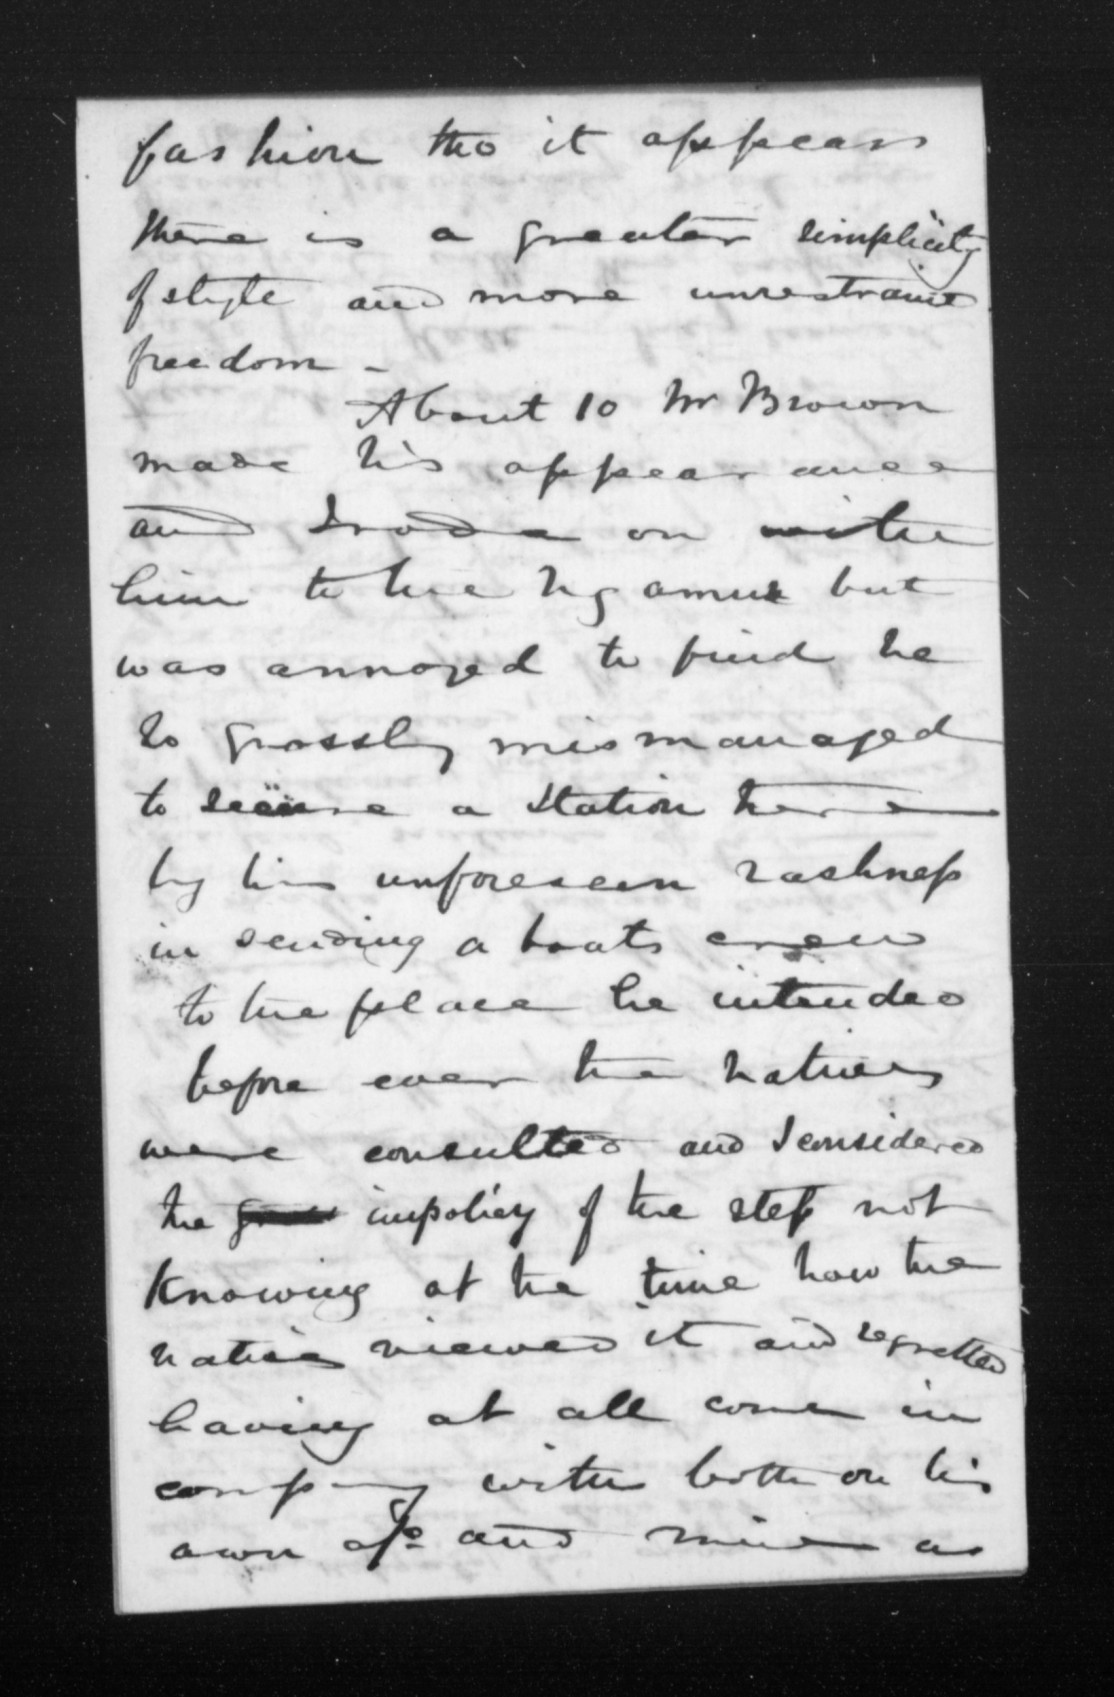 fashion tho it appears
there is a greater simplicity
of style and more unrestraind
freedom -
About 10 Mr Brown
made his appearance
and I rode on with
him to the Ngamu but
was annoyed to find he
so grossly mismanaged
to secure a station here
by his unforeseen rashness
in sending a boats crew
to the place he intended
before ever the natives
were consulted and I considered
the impolicy of the step not
Knowing at the time how the
natives viewed it and regretted
having at all come in
company with both on his
own a/c and mine as